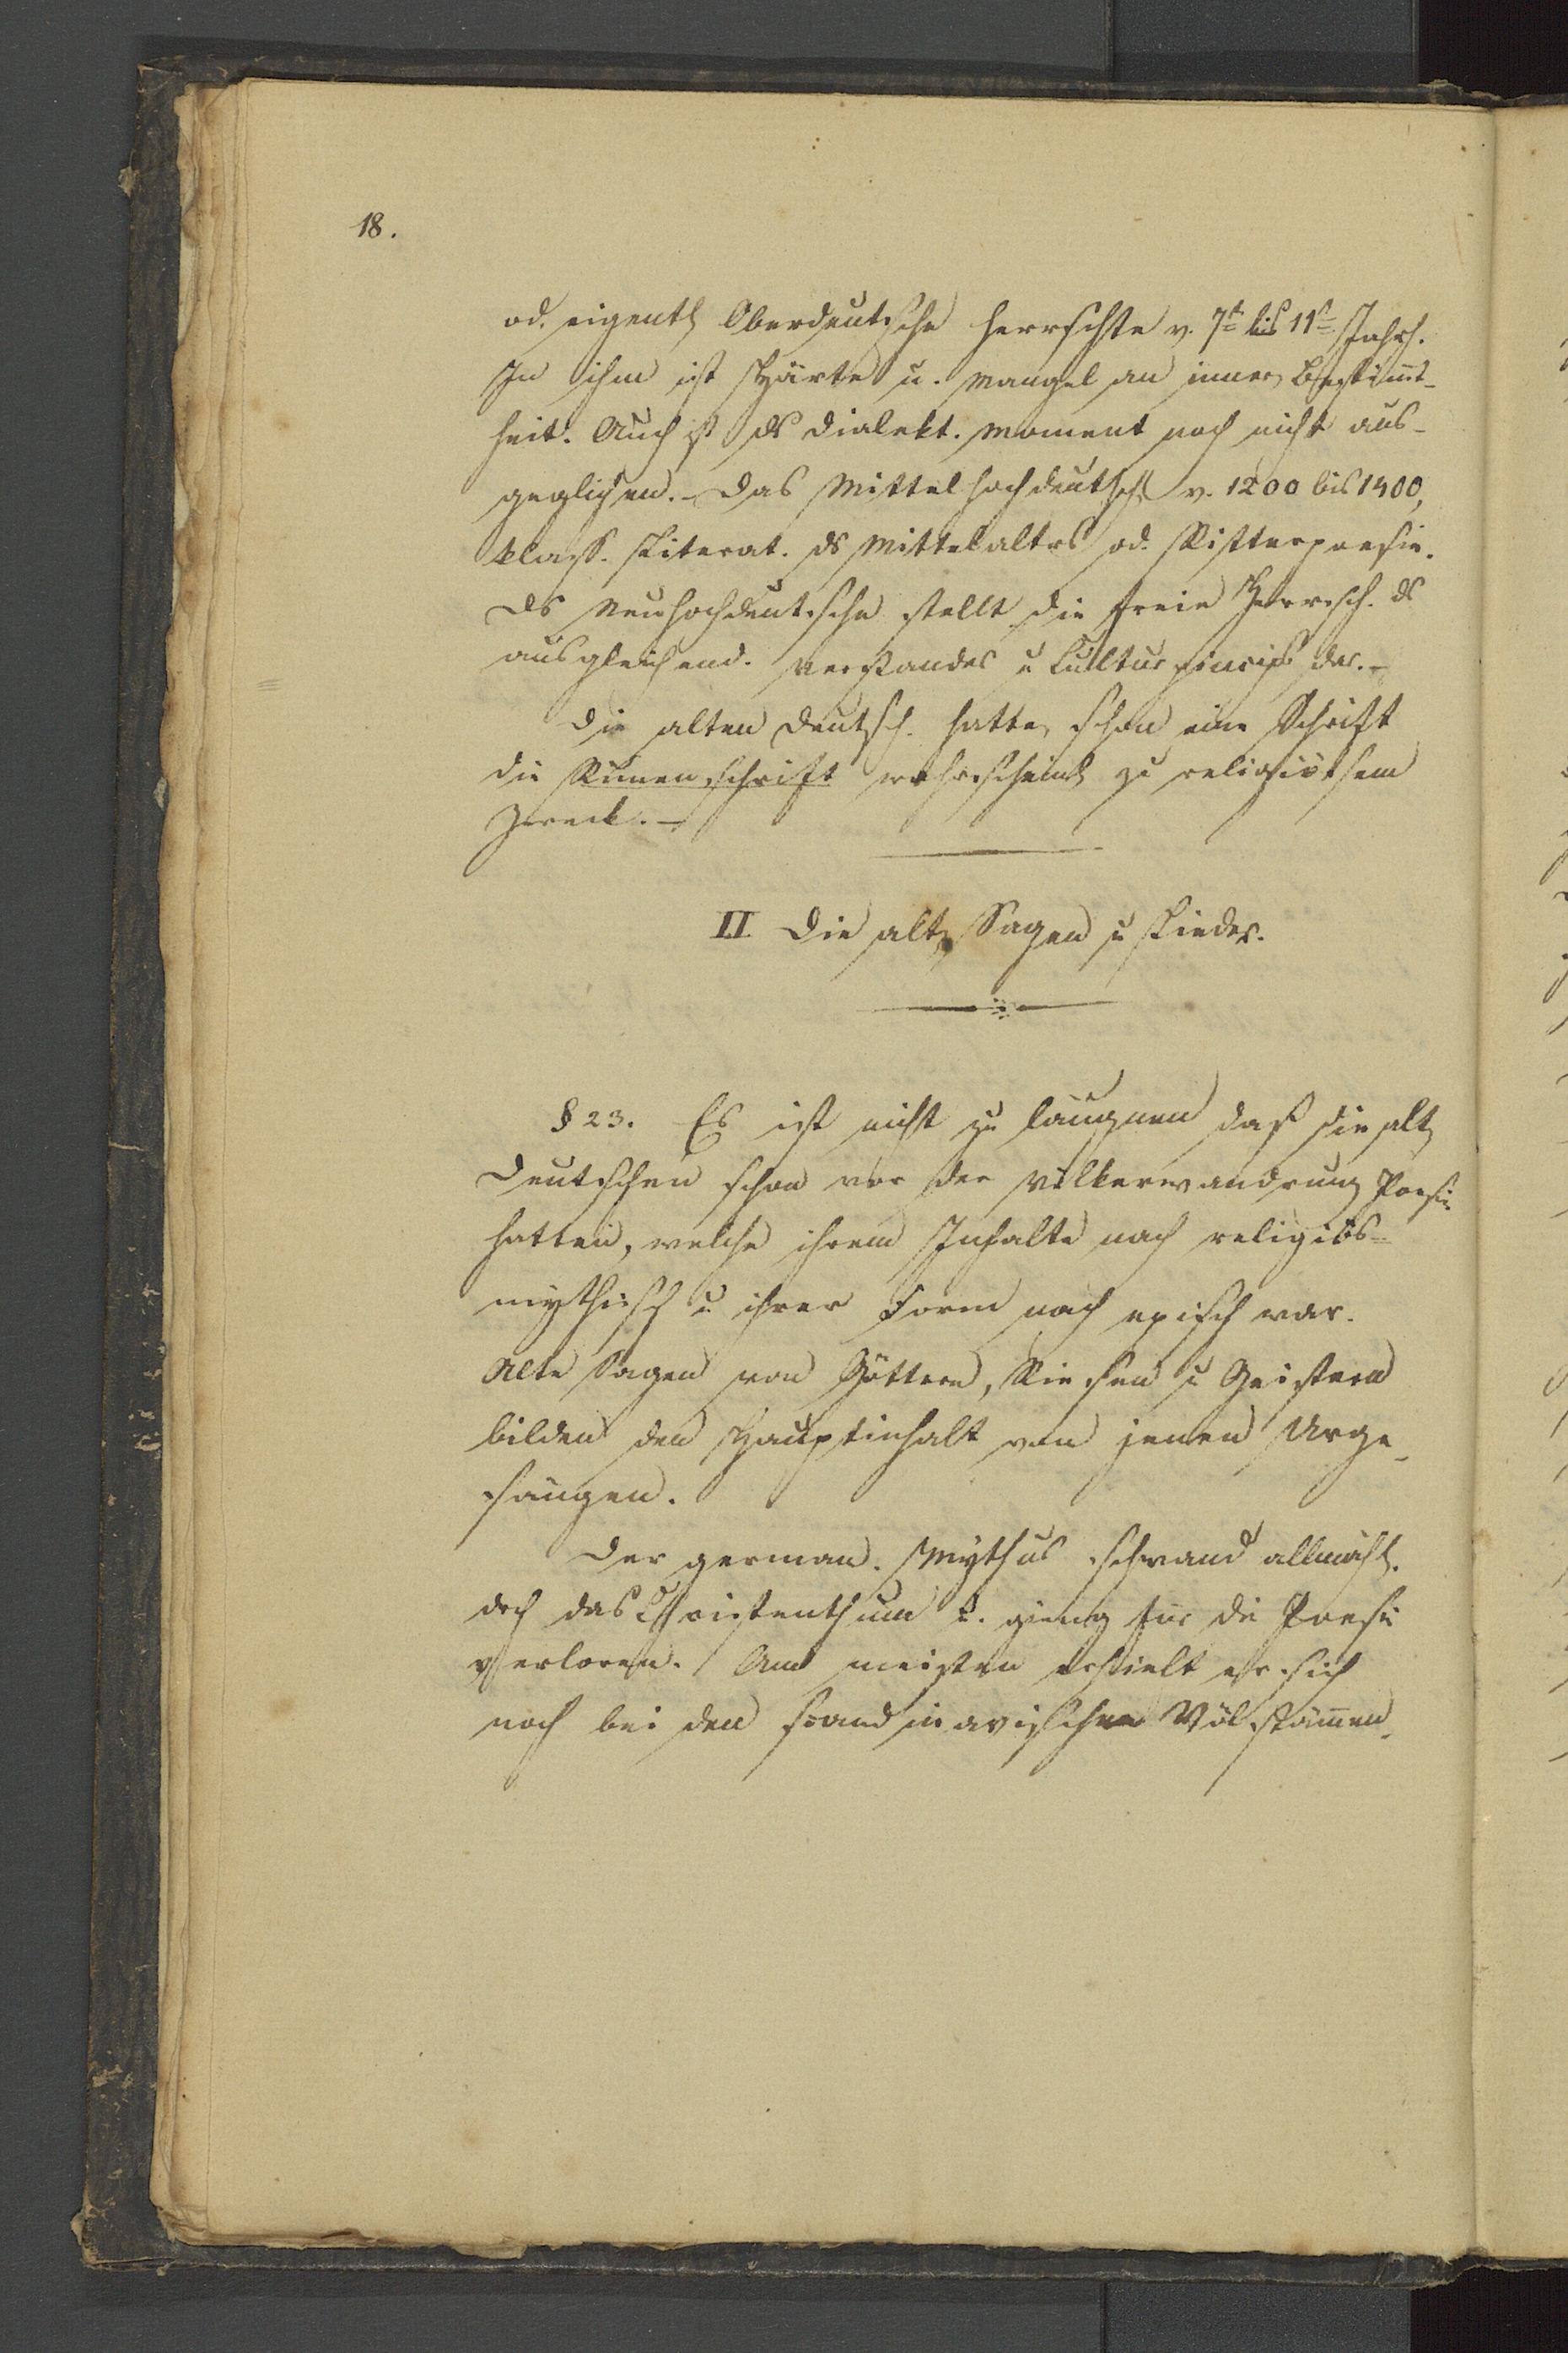 18.
od. eigentl. Oberdeutsche herrschte v. 7t bis 11t Jahrh.
In ihm ist Härte u. Mangel an innrer Bestim̄t-
heit. Auch ist ds dialekt. Moment noch nicht aus-
geglichen. – Das Mittelhochdeutsch v. 1200 bis 1400,
klass. Literat. ds Mittelalters od. Ritterpoesie.
Ds Neuhochdeutsche stellt die freie Herrsch. ds
ausgleichend. Verstandes u Culturprincips dar. –
Die alten Deutsch. hatten schon eine Schrift
die Runenschrift wahrscheinl. zu religiösem
Zweck. –
II Die alten Sagen u Lieder.
§ 23. Es ist nicht zu läugnen daß die alten
Deutschen schon vor der Völkerwandrung Poesie
hatten, welche ihrem Inhalte nach religiös-
mythisch u ihrer Form nach episch war.
Alte Sagen von Göttern, Riesen u Geistern
bilden den Hauptinhalt von jenen Urge-
sängen.
Der german. Mythus schwand allmähl.
dch das Christenthum u. gieng für die Poesie
verloren. Am meisten erhielt er sich
noch bei den scandinavischen Völkstäm̄en.